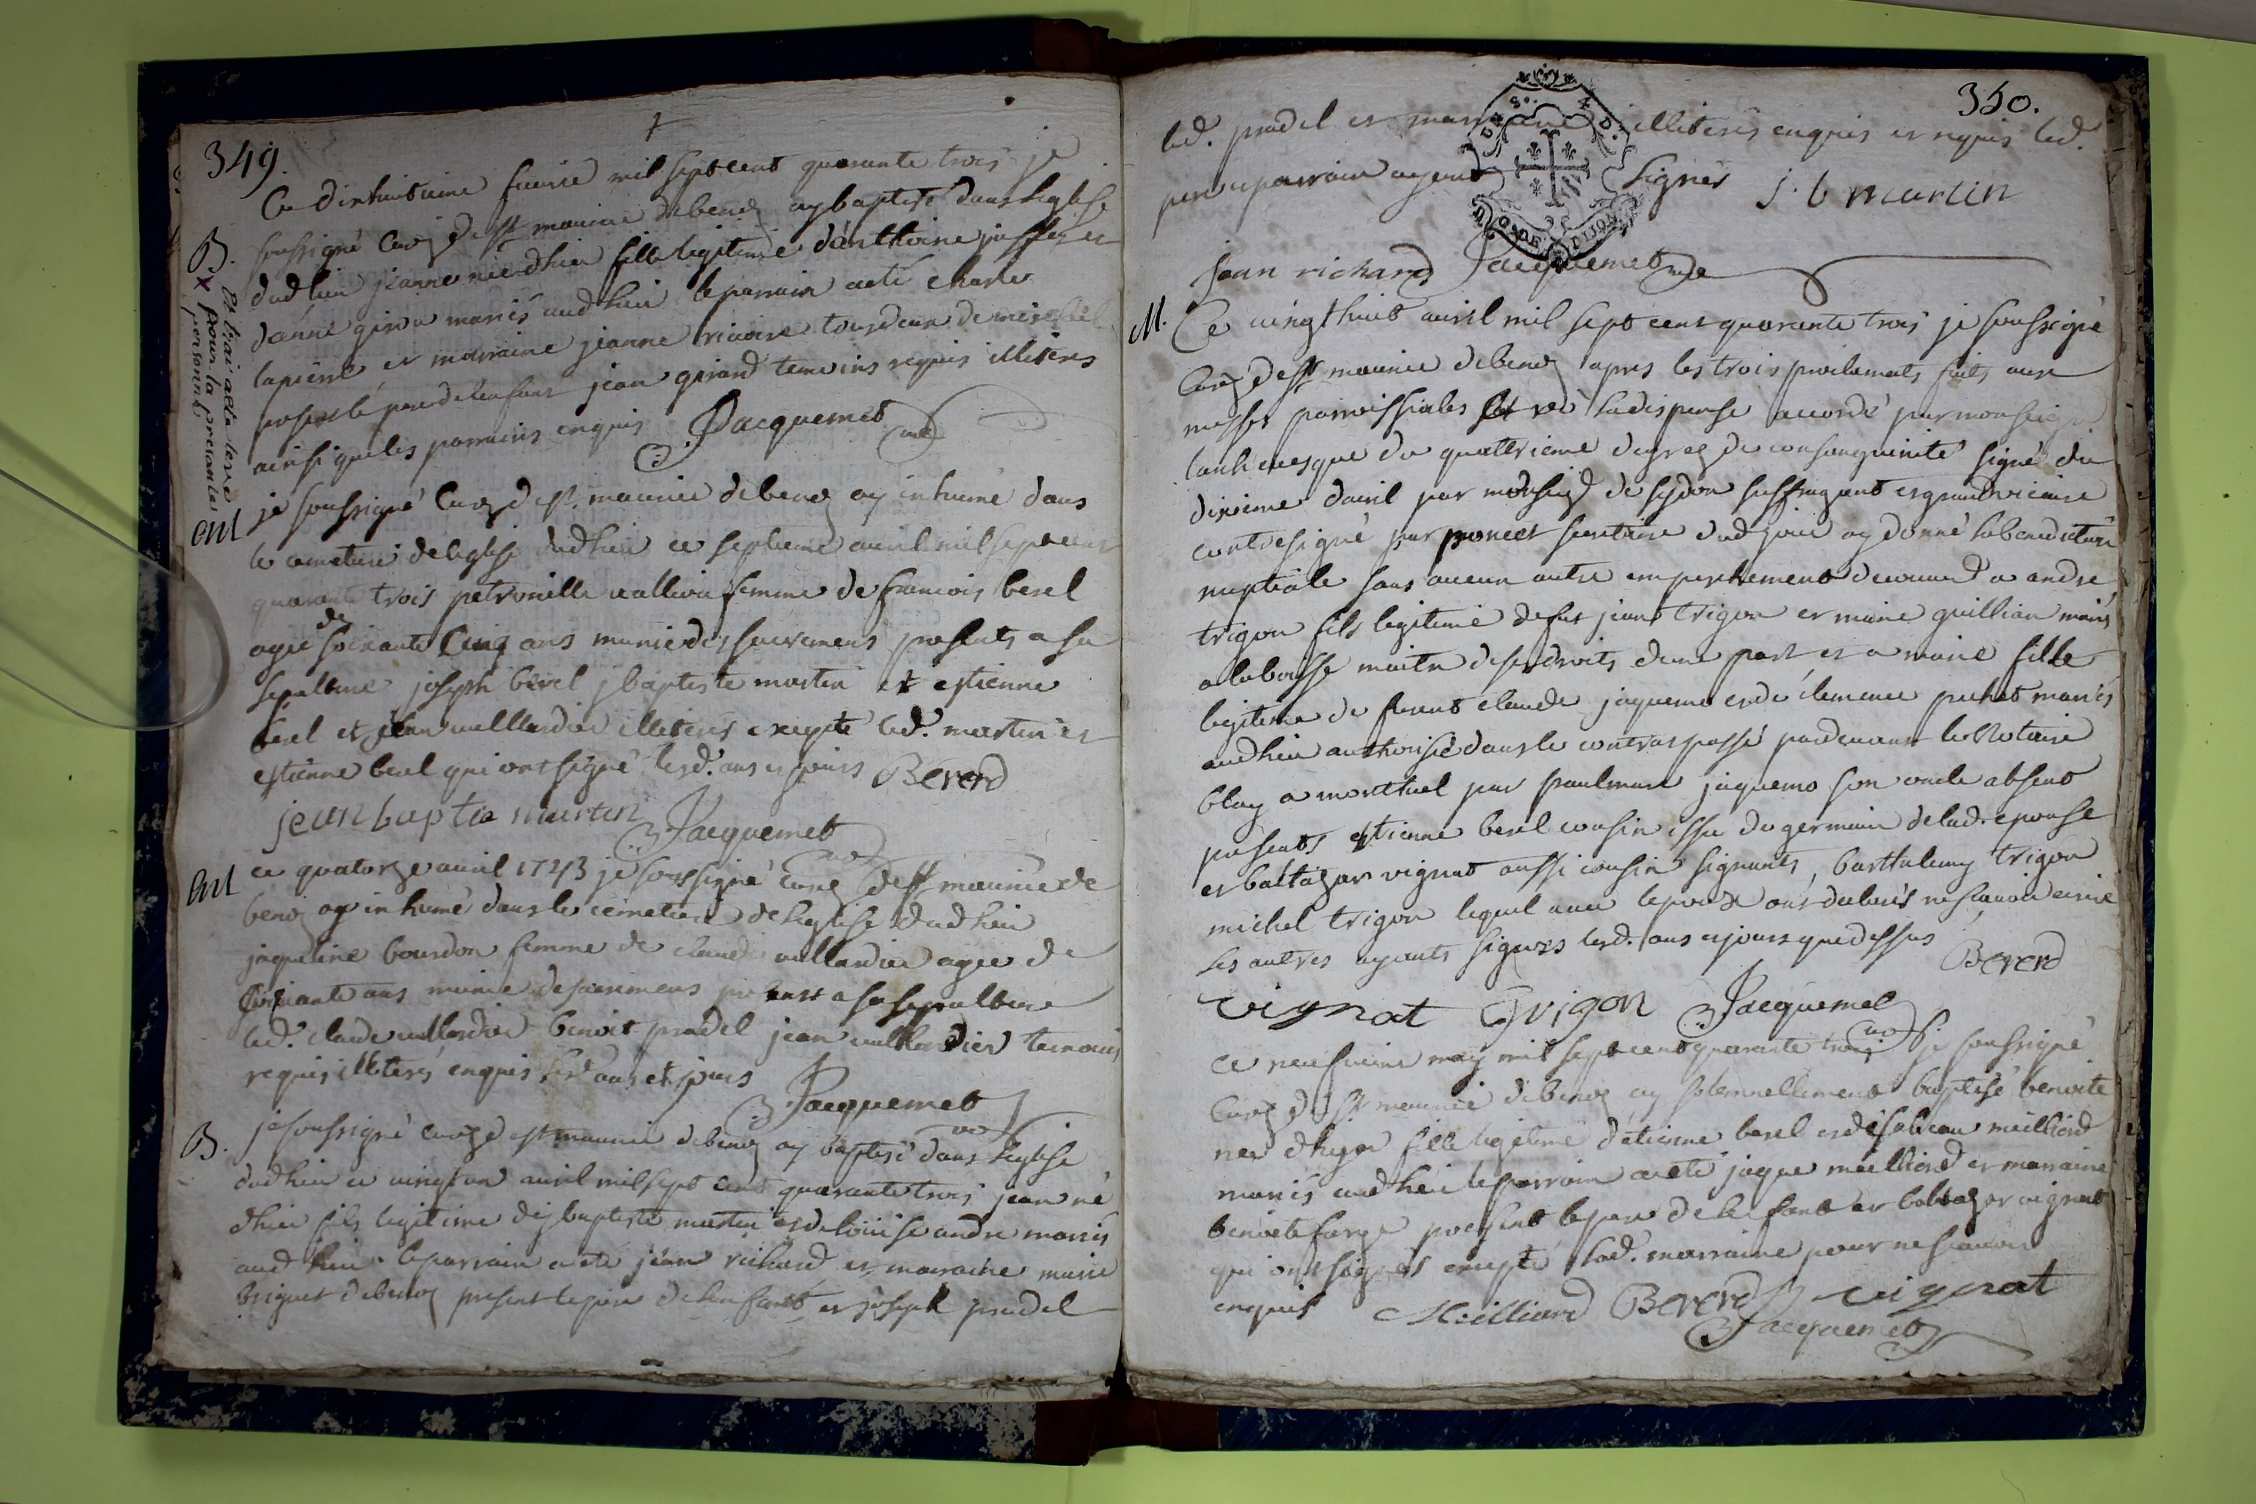 349.
Ce dixhuitieme feurie mil sept cent quarante trois je
soussigné Curé de st maurice debeno ay baptisé dans leglise
dud lieu jeanne née dhier fille legitime danthoine
danne mariés aud lieu le parrain a eté charle
lapierre et marraine jeanne
le pere de lenfant jean girard temoins requis illiteres
ainsi que les parrains enquis Jacquemet
curé
B.
X
Et trai acte
pour la presente
personne
ent
je soussigné Curé d st. maurice debeno ay inhumé dans
le cemetiere de leglise dud lieu ce septieme auril mil sept cent
quarante trois petronille femme de francois berel
agée de soixante Cinq ans munie des sacremens presents a sa
sepulture joseph berel j baptiste martin et estienne
berel et jean vullardier illiteres excepté led. martin et
estienne berel qui ont signé lesd. ans et jours Bererd
jean baptie martin Jacquemet
curé
ent
ce quatorze auril 1743 je soussigné Curé de st maurice de
beno ay inhumé dans le cemetiere de leglise dud lieu
jaqueline bourdon femme de claude vullardier agee de
soixante ans munie des sacremens presents a sa sepulture
led. claude vullardier benoit pradel jean vullardier temoins
requis illiterés enquis lesd ans et jours
Jacquemet
curé
B.
je soussigné curé d st maurice debeno ay baptisé dans leglise
dud lieu ce vingt un auril mil sept cent quarante trois jean né
dhier fils legitime de j baptiste martin et de louise andre mariés
aud lieu. le parrain a eté jean richard et marraine marie
briguet debeno present le pere de lenfant et joseph pradel
350.
led. pradel et marraine illiterés enquis et requis led.
pere et parrain ayent signés j. b martin
jean richard Jacquemet curé
M.
Ce vingthuit auril mil sept cent quarante trois je soussigné
Curé de st maurice debeno apres les trois proclamats faits aux
messes parroissiales et veu la dispense accordé par monseigr.
larcheuesque du quattrieme degrez de consanguinité signé du
dixieme dauril par monseigr de sydon suffragant et grand vicaire
contresigné par poncet secretaire dud jour ay donné la benediction
nuptiale sans aucun autre empechement decouuert a andré
trigon fils legitime de fut jean trigon et marie guillian mariés
a la boisse maitre de ses droits dune part et a marie fille
legitime de furent claude jaquemo et de clemence pichat mariés
aud lieu authorisé dans le contrat passé pardeuant le Notaire
blay a montluel par paulmare jaquemo son oncle absent
presents estienne berel cousin issu du germain de lad. epouse
et baltazar vignat aussi cousin signants, barthelemy trigon
michel trigon lequel auec lepoux ont declarés ne scauoir ecrire
les autres ayants signés lesd. ans et jours que dessus Bererd
vignat Trigon Jacquemet
curé
ce neufuieme may mil sept cent quarante trois je soussigné
Curé d st maurice debeno ay solennellement baptisé benoite
née dhyer fille legitime détienne berel et disabeau meilliard
mariés aud lieu le parrain a eté jaque meilliard et marraine
benoite farge present le pere de lenfant et baltazar vignat
qui ont signés excepté lad. marraine pour ne scauoir
enquis Meilliard Bererd vignat
Jacquemet